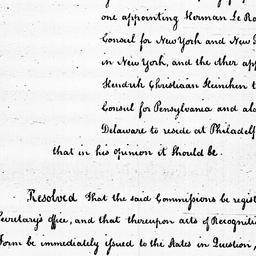 one appointing Herman Le Ro
Consul for New York and New
in New York, and the other app
Hendrik Christiaan Heineken t
Consul for Pennsylvania and als
Delaware to reside at Philadelp
that in his opinion it should be.
Resolved That the said Commissions be regist
Secretary's office, and that thereupon acts of Recogniti
Form be immediately issued to the States in Question,